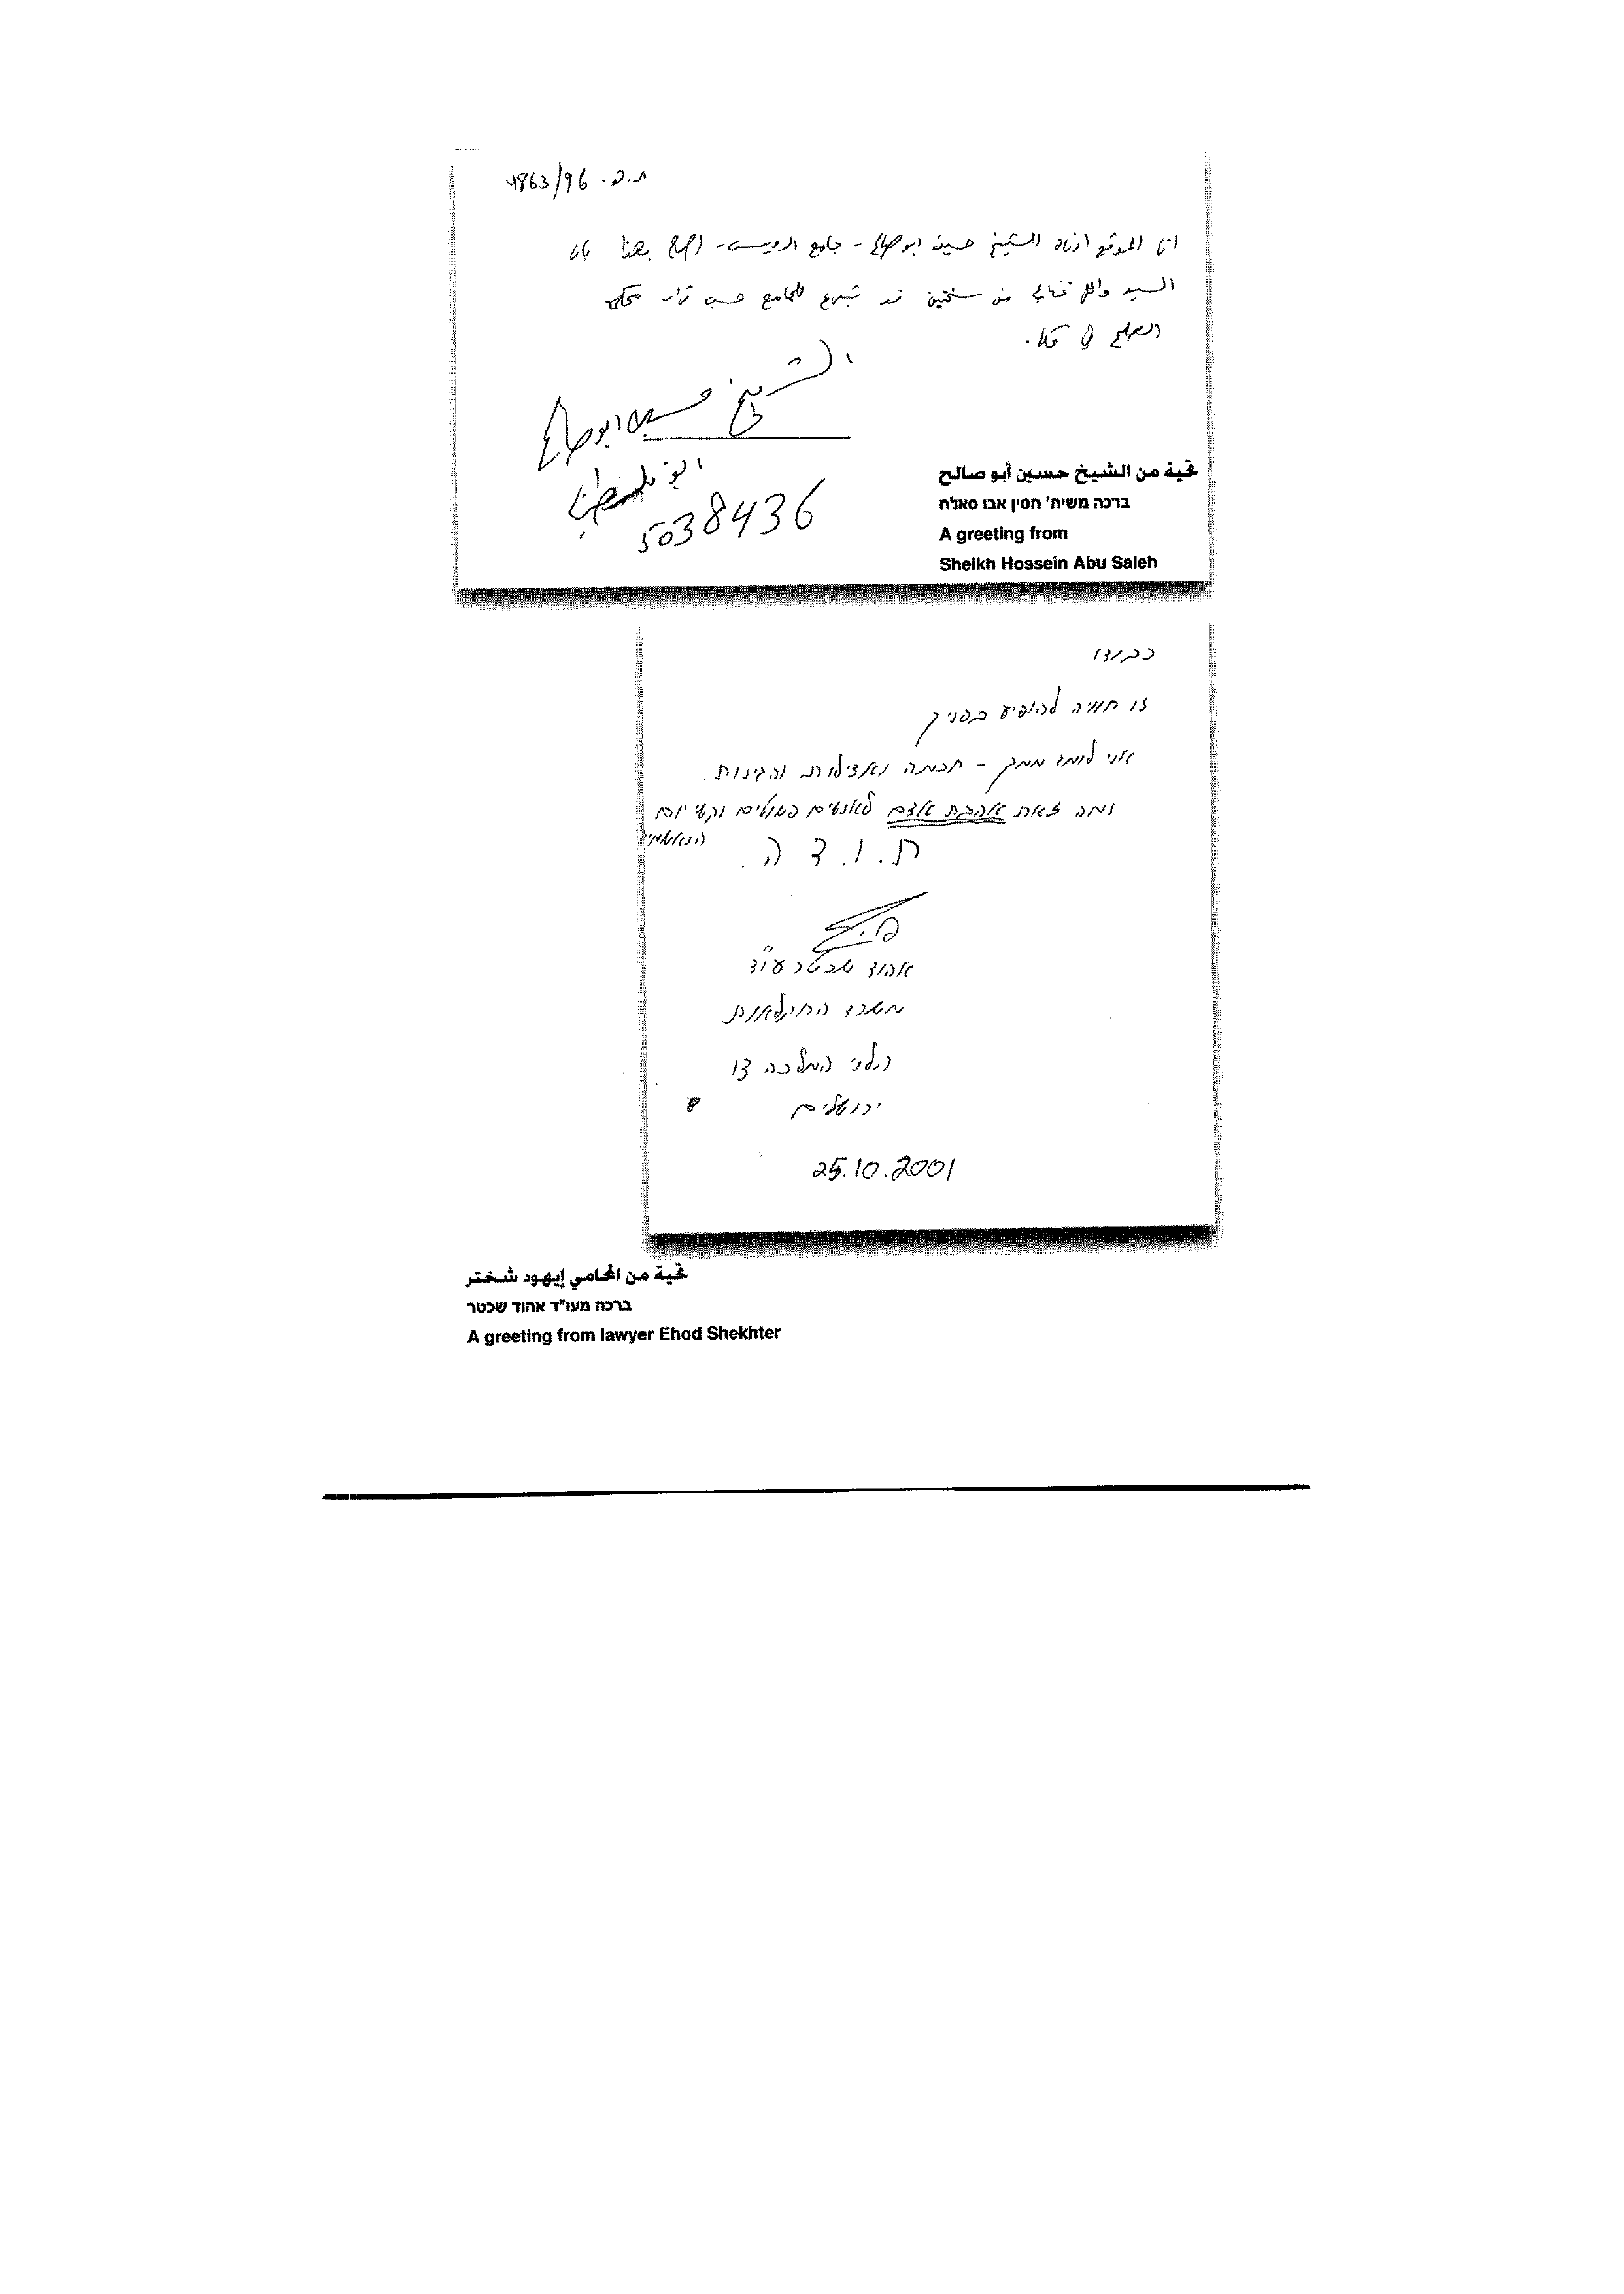 ת.פ. 4863/96
انا الموقع ادناه الشيخ حسين ابو صالح - جامع الرويس - اصرح بهذا بان
السيد وائل من سخنين قد تبرع للجامع حسب قرار محكمة
الصلح في عكا.
الشيخ حسين ابو صالح
5038436
تحية من الشيخ حسين أبو صالح
ברכה משיח' חסין אבו סאלח
A greeting from
Sheikh Hossein Abu Saleh
כבודו
זו חוויה להופיע בפניך
אני לומד ממך - חכמה ואצילות והגינות.
ומה זאת אהבת אדם לאנשים פשוטים וקשי יום
ת.ו.ד.ה.
אהוד שכטר עו"ד
משרד החקלאות
הלני המלכה 13
ירושלים
25.10.2001
تحية من المحامي إيهود شختر
ברכה מעו"ד אהוד שכטר
A greeting from lawyer Ehod Shekhter